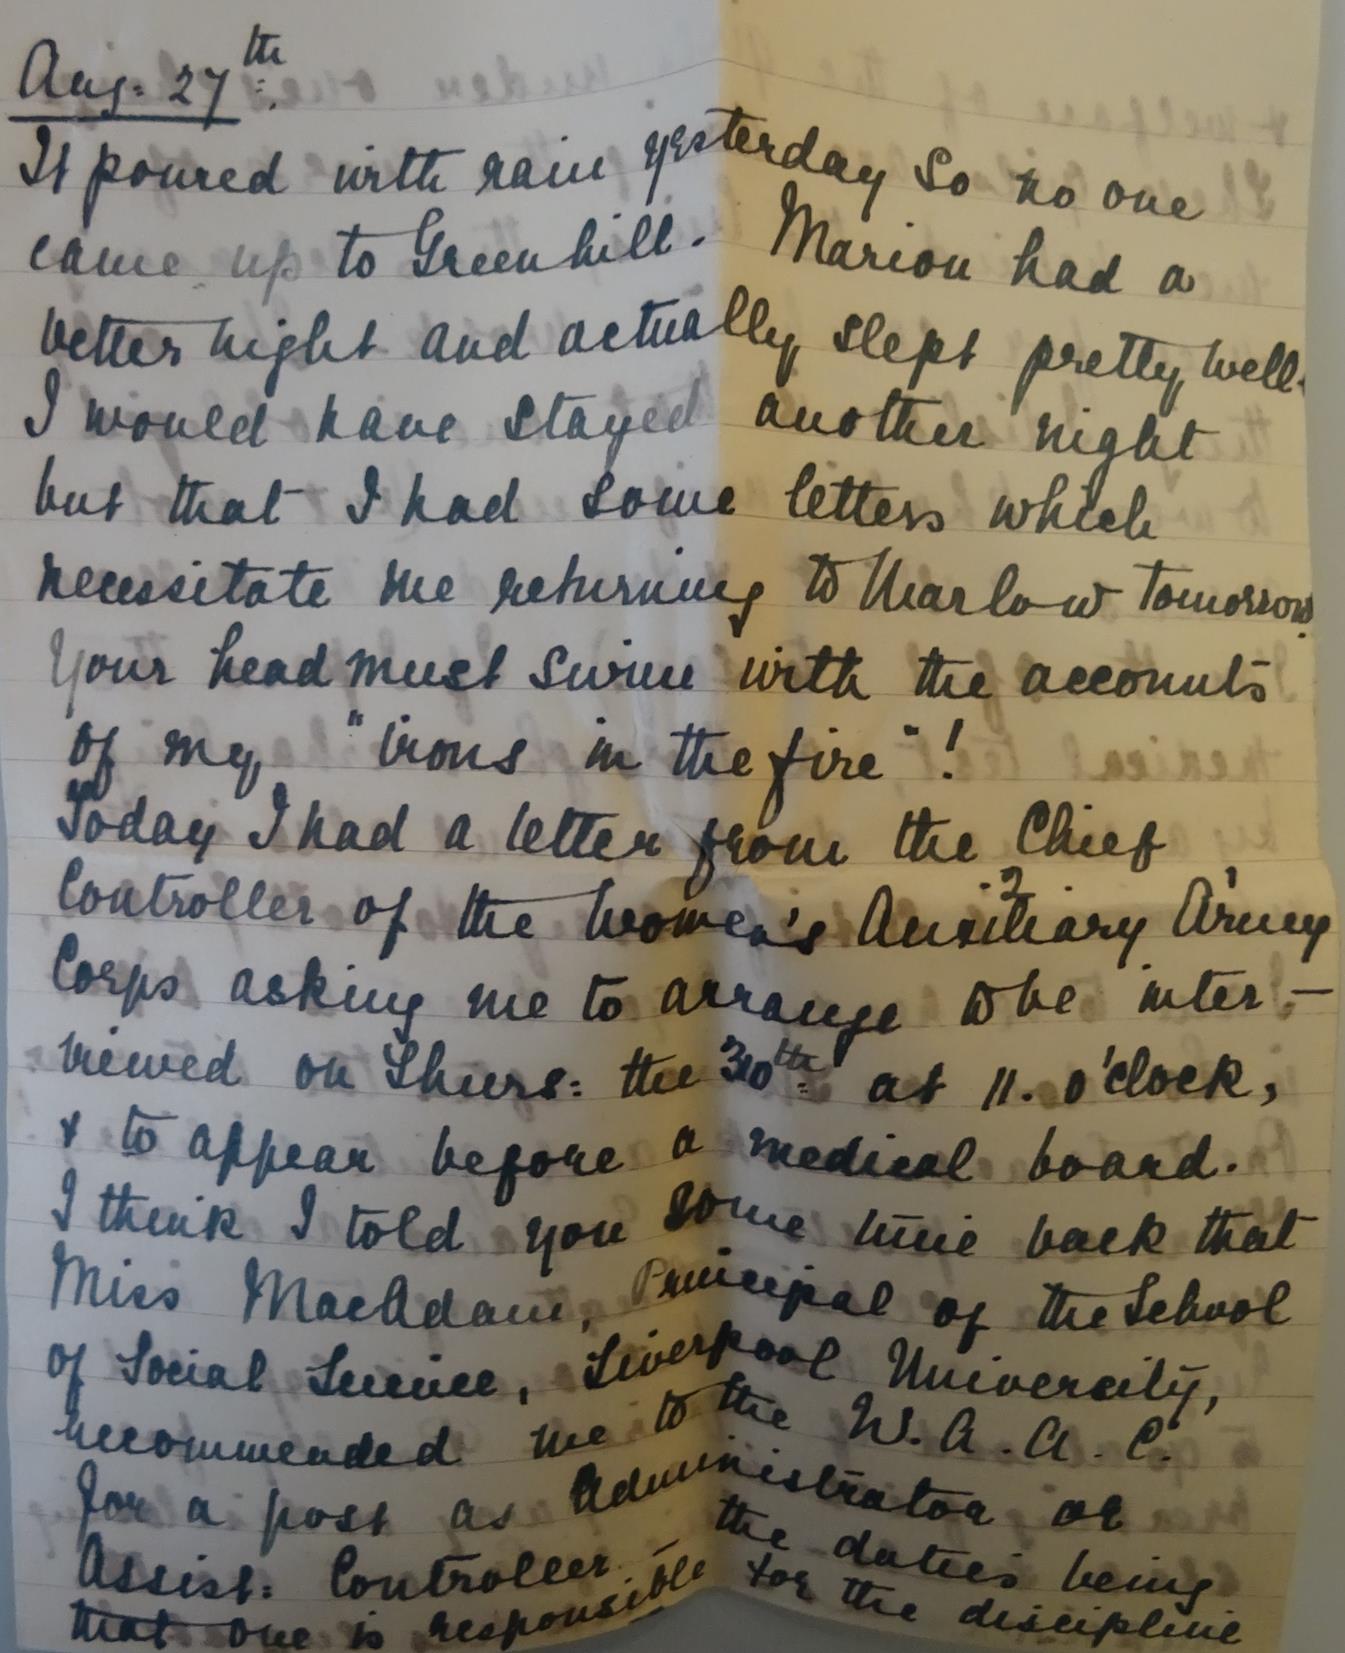 Aug: 27th:
It poured with rain yesterday so no one
came up to Greenhill. Marion had a
better night and actually slept pretty well.
I would have stayed another night
but that I had some letters which
necessitate me returning to Marlow tomorrow.
Your head must swim with the accounts
of my "irons in the fire"!
Today I had a letter from the Chief
Controller of the Women's Auxiliary Army
Corps asking me to arrange to be inter-
viewed on Thurs: the 30th: at 11. o'clock,
& to appear before a medical board.
I think I told you some time back that
Miss MacAdam, Principal of the School
of Social Science, Liverpool University,
recommended me to the W.A.A.C.
for a post as Administrator or
Assist: Controller — the duties being
that one is responsible for the discipline